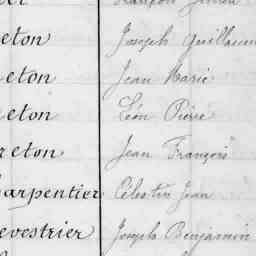 eton Joseph Guillaum
eton Jean Marie
eton Léon Pierre
reton Jean François
harpentier Célestin Jean
evestrier Joseph Benjamin